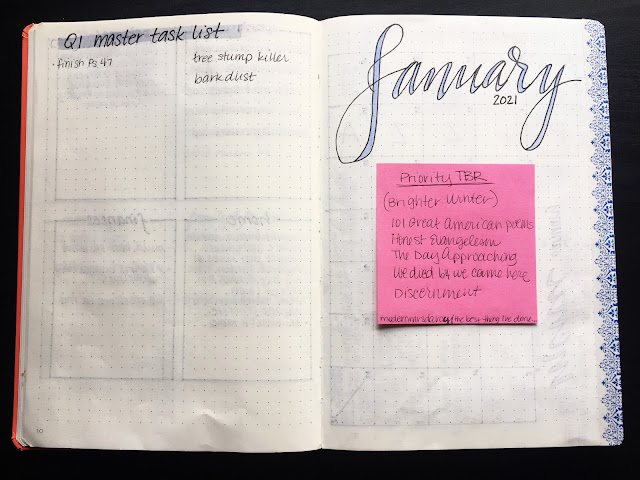 Q1 master task list
· finish Ps 47
tree stump killer
bark dust
January
2021
Priority TBR
(Brighter Winter)
101 Great American poems
Honest Evangelism
The Day Approaching
We died b4 we came here
Discernment
the best thing I've done...
10
finances
home